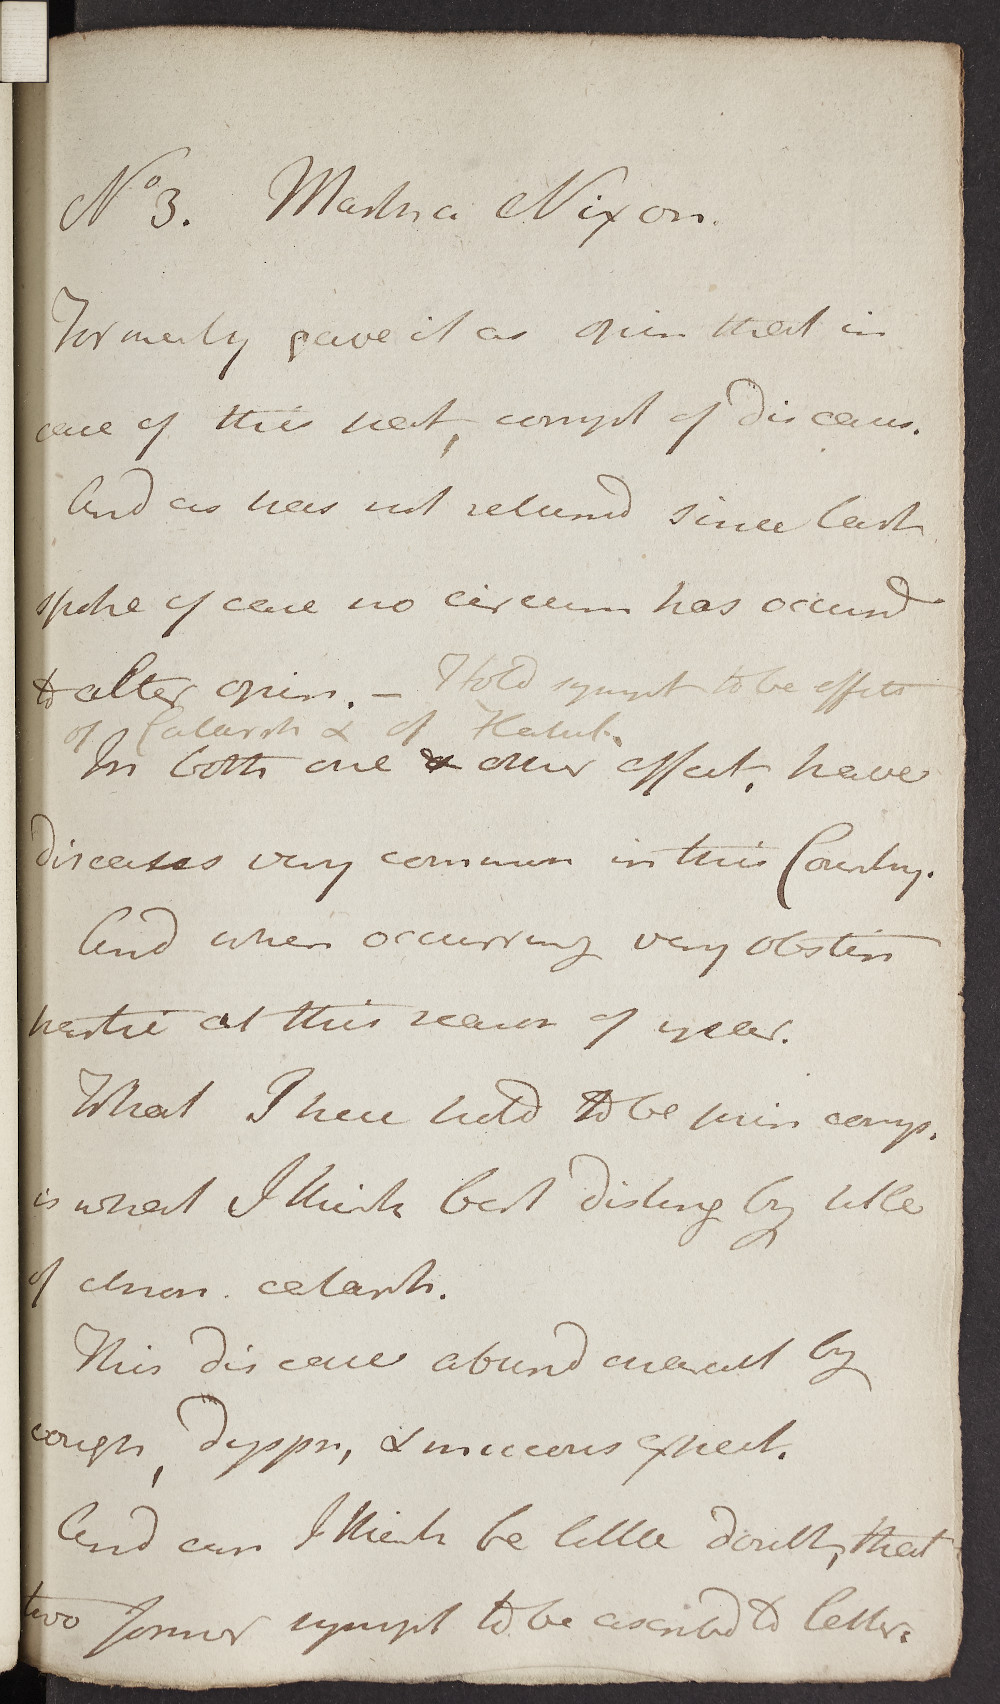 No 3. Martha Nixon.
Formerly gave it as opin that in
case of this pat, compl of diseases.
And as has not returnd since last
spoke of case no circum has occurd
to alter opin. - Hold sympt to be effects
of Catarrh & of Flatul.
In both one & other effect, have
diseases very common in this Country.
And when occurring very obstin
partic at this season of year.
What I here hold to be prin comp.
is what I think best disting by title
of chron. catarrh.
This disease abund charact by
cough, dyspn, & mucous expect.
And can I think be little doubt, that
two former sympt to be ascribd to latter.